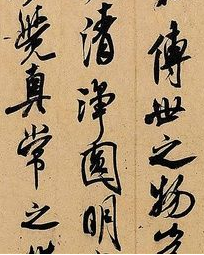 傳世之物
清淨圓明
覺真常之